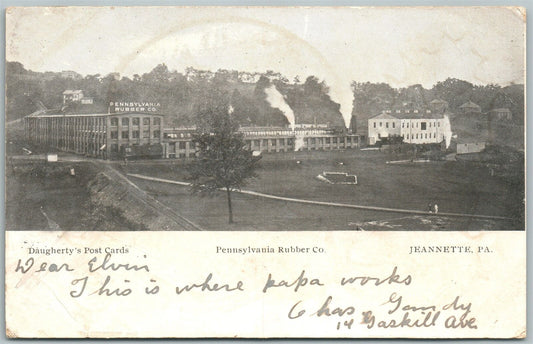 PENNSYLVANIA
RUBBER CO.
Daugherty's Post Cards Pennsylvania Rubber Co. JEANNETTE, PA.
Dear Elvin
This is where papa works
Chas
14 Gaskill Ave